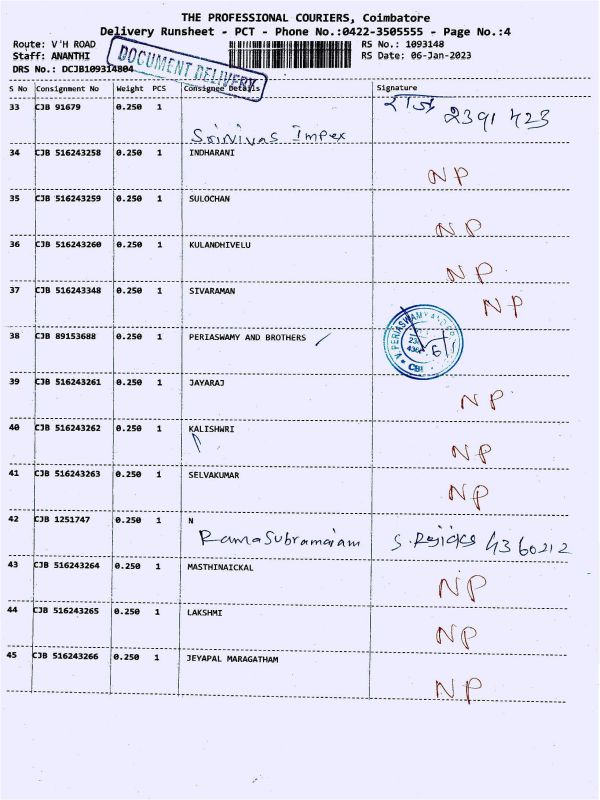 THE PROFESSIONAL COURIERS, Coimbatore
Delivery Runsheet - PCT - Phone No.:0422-3505555 - Page No.:4
Route: V'H ROAD RS No.: 1093148
Staff: ANANTHI RS Date: 06-Jan-2023
DRS No.: DCJB109314804
DOCUMENT DELIVERY
S No Consignment No Weight PCS Consignee Details Signature
33 CJB 91679 0.250 1
2391 423
Srinivas Impex
34 CJB 516243258 0.250 1 INDHARANI
NP
35 CJB 516243259 0.250 1 SULOCHAN
NP
36 CJB 516243260 0.250 1 KULANDHIVELU
NP
37 CJB 516243348 0.250 1 SIVARAMAN
NP
38 CJB 89153688 0.250 1 PERIASWAMY AND BROTHERS
V. PERIASWAMY AND
39 CJB 516243261 0.250 1 JAYARAJ
NP
40 CJB 516243262 0.250 1 KALISHWRI
NP
41 CJB 516243263 0.250 1 SELVAKUMAR
NP
42 CJB 1251747 0.250 1 N
Ramasubramaiam S. 4360212
43 CJB 516243264 0.250 1 MASTHINAICKAL
NP
44 CJB 516243265 0.250 1 LAKSHMI
NP
45 CJB 516243266 0.250 1 JEYAPAL MARAGATHAM
NP